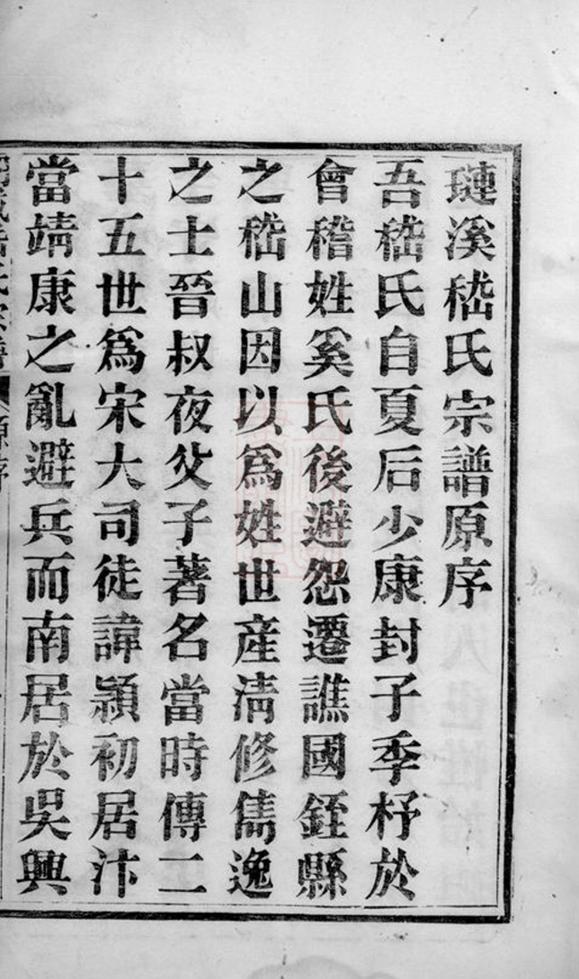 璉溪嵇氏宗譜原序
吾嵇氏自夏后少康封子季杼於
會稽姓奚氏後避怨遷譙國銍縣
之嵇山因以為姓世產淸修儁逸
之士晉叔夜父子著名當時傳二
十五世為宋大司徒諱頴初居汴
當靖康之亂避兵而南居於吳興